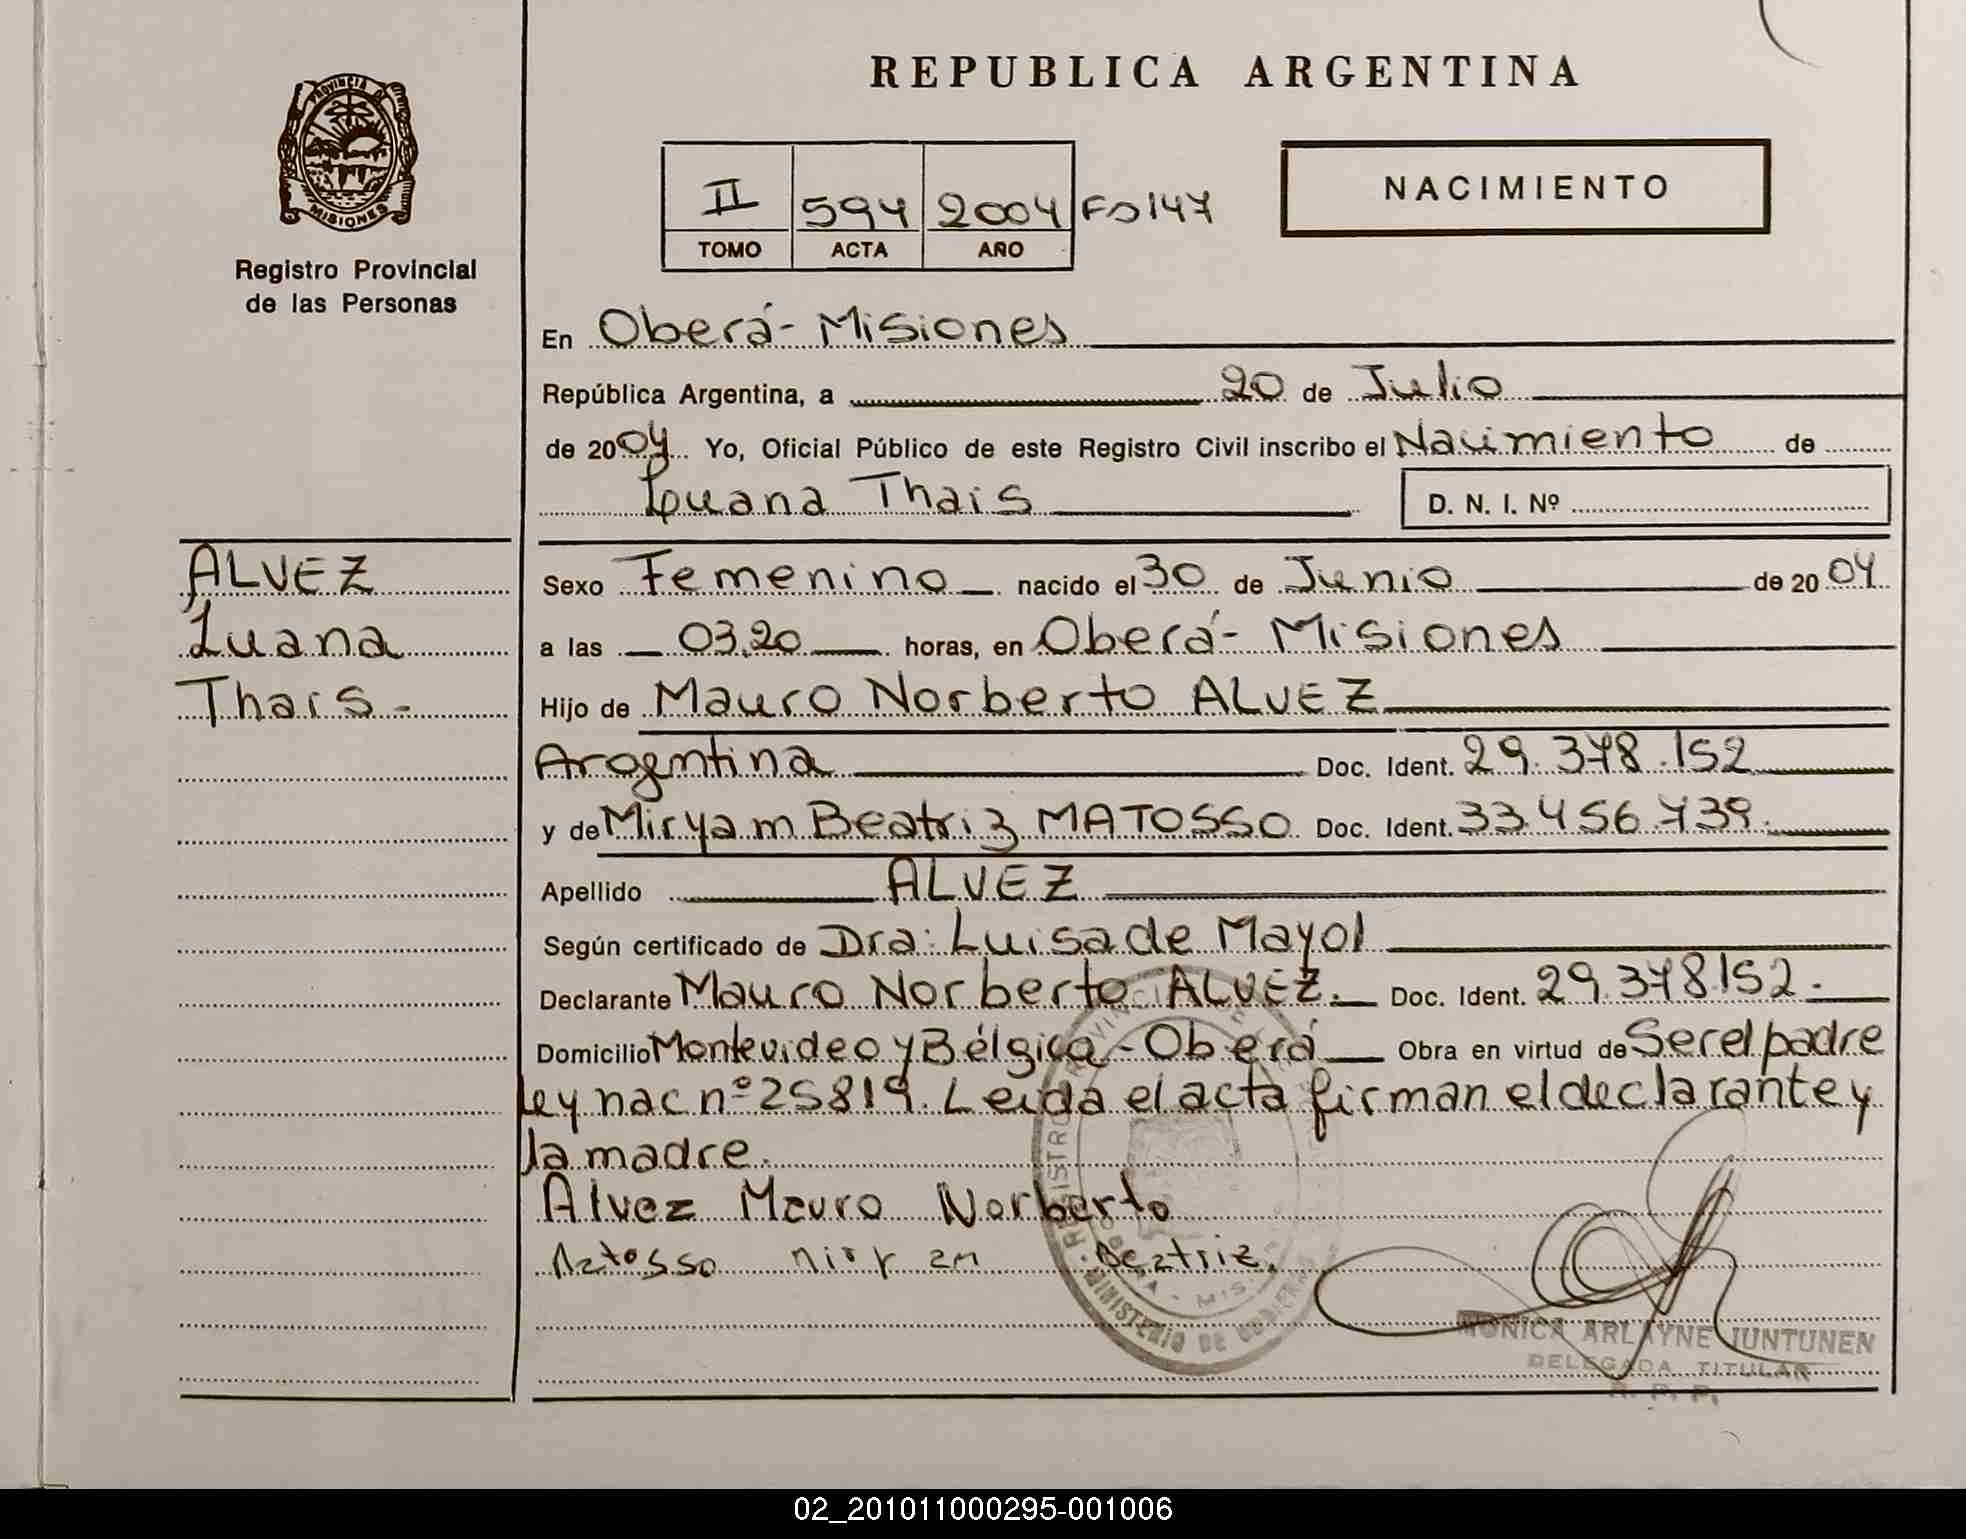 REPUBLICA ARGENTINA
PROVINCIA DE
MISIONES
Registro Provincial
de las Personas
II 594 2004 Fº 147
TOMO ACTA AÑO
NACIMIENTO
En Oberá - Misiones
República Argentina, a 20 de Julio
de 2004 Yo, Oficial Público de este Registro Civil inscribo el Nacimiento de
Luana Thais
D. N. I. Nº
ALVEZ
Luana
Thais -
Sexo Femenino nacido el 30 de Junio de 2004
a las 03,20 horas, en Oberá - Misiones
Hijo de Mauro Norberto ALVEZ
Argentina Doc. Ident. 29.378.152
y de Miryam Beatriz MATOSSO Doc. Ident. 33.456.739.
Apellido ALVEZ
Según certificado de Dra: Luisa de Mayol
Declarante Mauro Norberto ALVEZ. Doc. Ident. 29.378.152.
Domicilio Montevideo y Bélgica - Oberá Obra en virtud de Ser el padre
Ley nac nº 25819. Leida el acta firman el declarante y
la madre.
Alvez Mauro Norberto
Matosso Miryam Beatriz.
REGISTRO PROVINCIAL DE
OBERA - MIS.
MINISTERIO DE GOBIERNO
MONICA ARLAYNE JUNTUNEN
DELEGADA TITULAR
R. P. P.
02_201011000295-001006